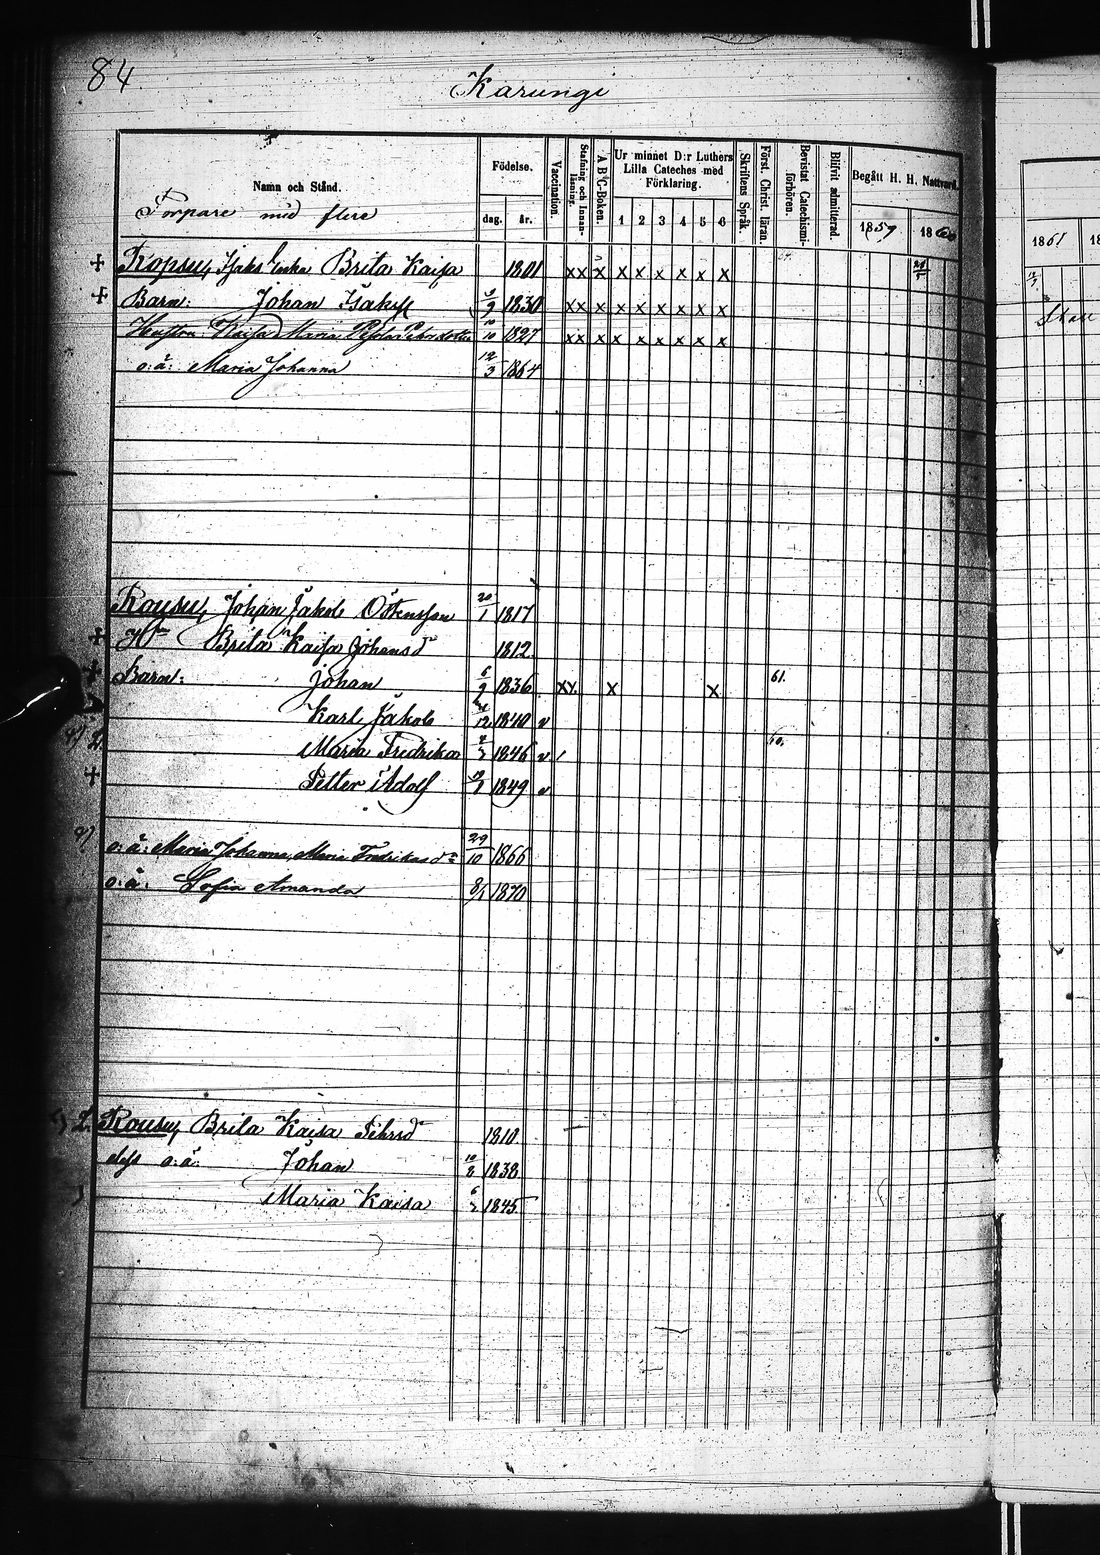 84
Karungi
Namn och Stånd.
Torpare med flere
Födelse.
dag. år.
Vaccination.
Stafning och Innanläsning.
A B C-Boken.
Ur minnet D:r Luthers Lilla Cateches med Förklaring.
1 2 3 4 5 6
Skriftens Språk.
Först. Christ. läran.
Bevistat Catechismiförhören.
Blifvit admitterad.
Begått H. H. Nattvard.
1859 1860
1861
+ Kopsu, Isaks Enka Brita Kaisa 1801 x x x x x x x x x
+ Barn: Johan Isaksf 1830 x x x x x x x x x
Hustru Kaisa Maria 10/10 1827 x x x x x x x x x
o:ä: Maria Johanna 12/3 1864
Rousu, Johan Jakob Östensson 20/1 1817
+ H:n Brita Kaisa Johansd 1812
+ Barn: Johan 6/9 1836 x x x x 61.
Karl Jakob 12 1840 v
Maria Fredrika 1846 v 60.
+ Petter Adolf 1849 v
o:ä: Maria Johanna, Maria Fredrikasd 29/10 1866
o:ä: Sofia Amanda 1870
Rousu, Brita Kaisa Pehrsd 1810
dess o:ä: Johan 10/8 1838
Maria Kaisa 1845